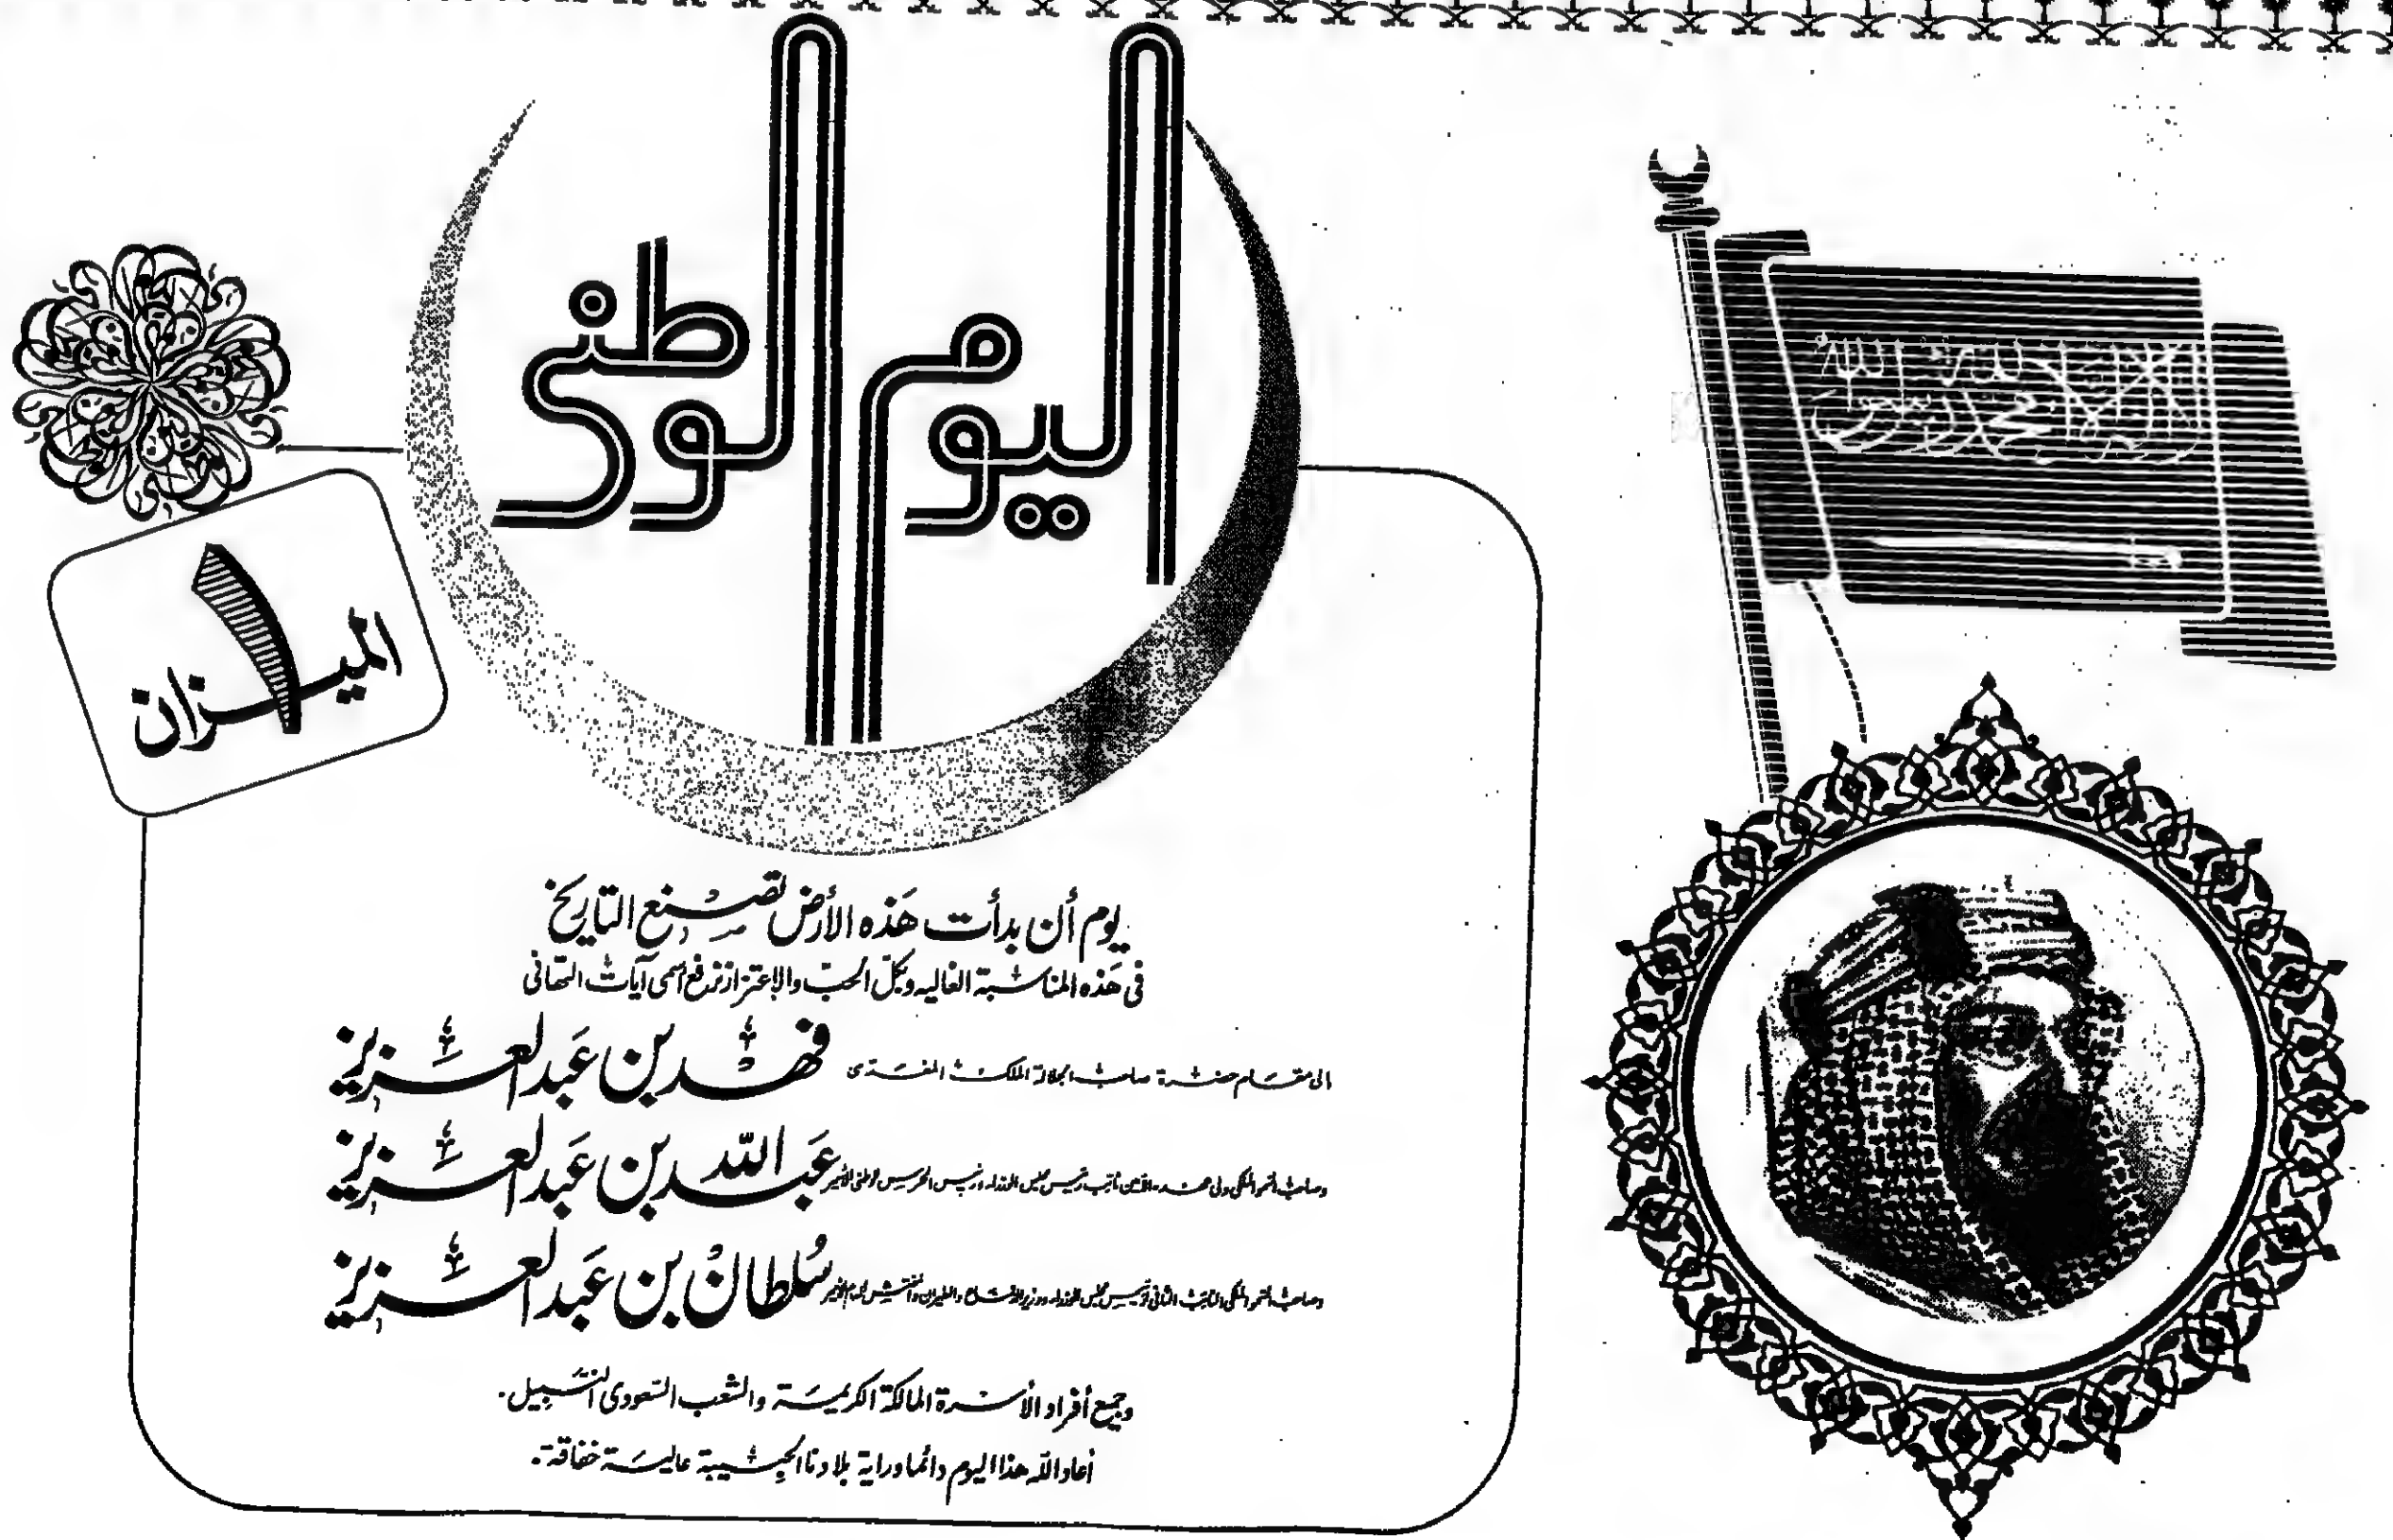 اليوم الوطني
لا إله إلا الله محمد رسول الله
١ الميزان
يوم أن بدأت هذه الأرض تصنع التاريخ
في هذه المناسبة الغاليه وبكل الحب والإعتزاز نرفع أسمى آيات التهاني
الى مقام حضرة صاحب الجلالة الملك المفدى فهد بن عبد العزيز
وصاحب السمو الملكي ولي العهد الأمين نائب رئيس مجلس الوزراء ورئيس الحرس الوطني الأمير عبد الله بن عبد العزيز
وصاحب السمو الملكي النائب الثاني لرئيس مجلس الوزراء ووزير الدفاع والطيران والمفتش العام الأمير سلطان بن عبد العزيز
وجميع أفراد الأسرة المالكة الكريمة والشعب السعودي النبيل.
أعاد الله هذا اليوم دائما وراية بلادنا الحبيبة عالية خفاقة.